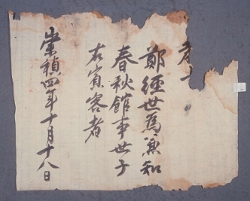 敎
鄭經世爲兼知
春秋館事世子
右賓客者
崇禎四年十月十八日